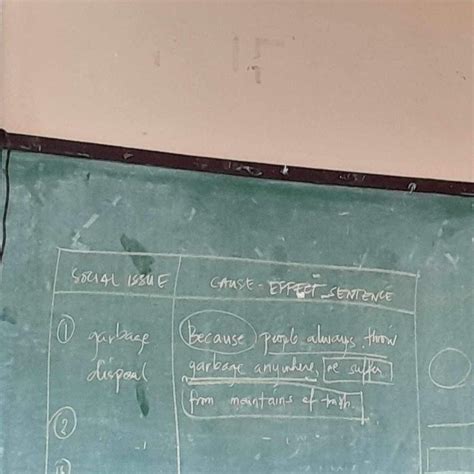 SOCIAL ISSUE
CAUSE - EFFECT SENTENCE
① garbage
disposal
Because people always throw
garbage anywhere, we suffer
from mountains of trash.
②